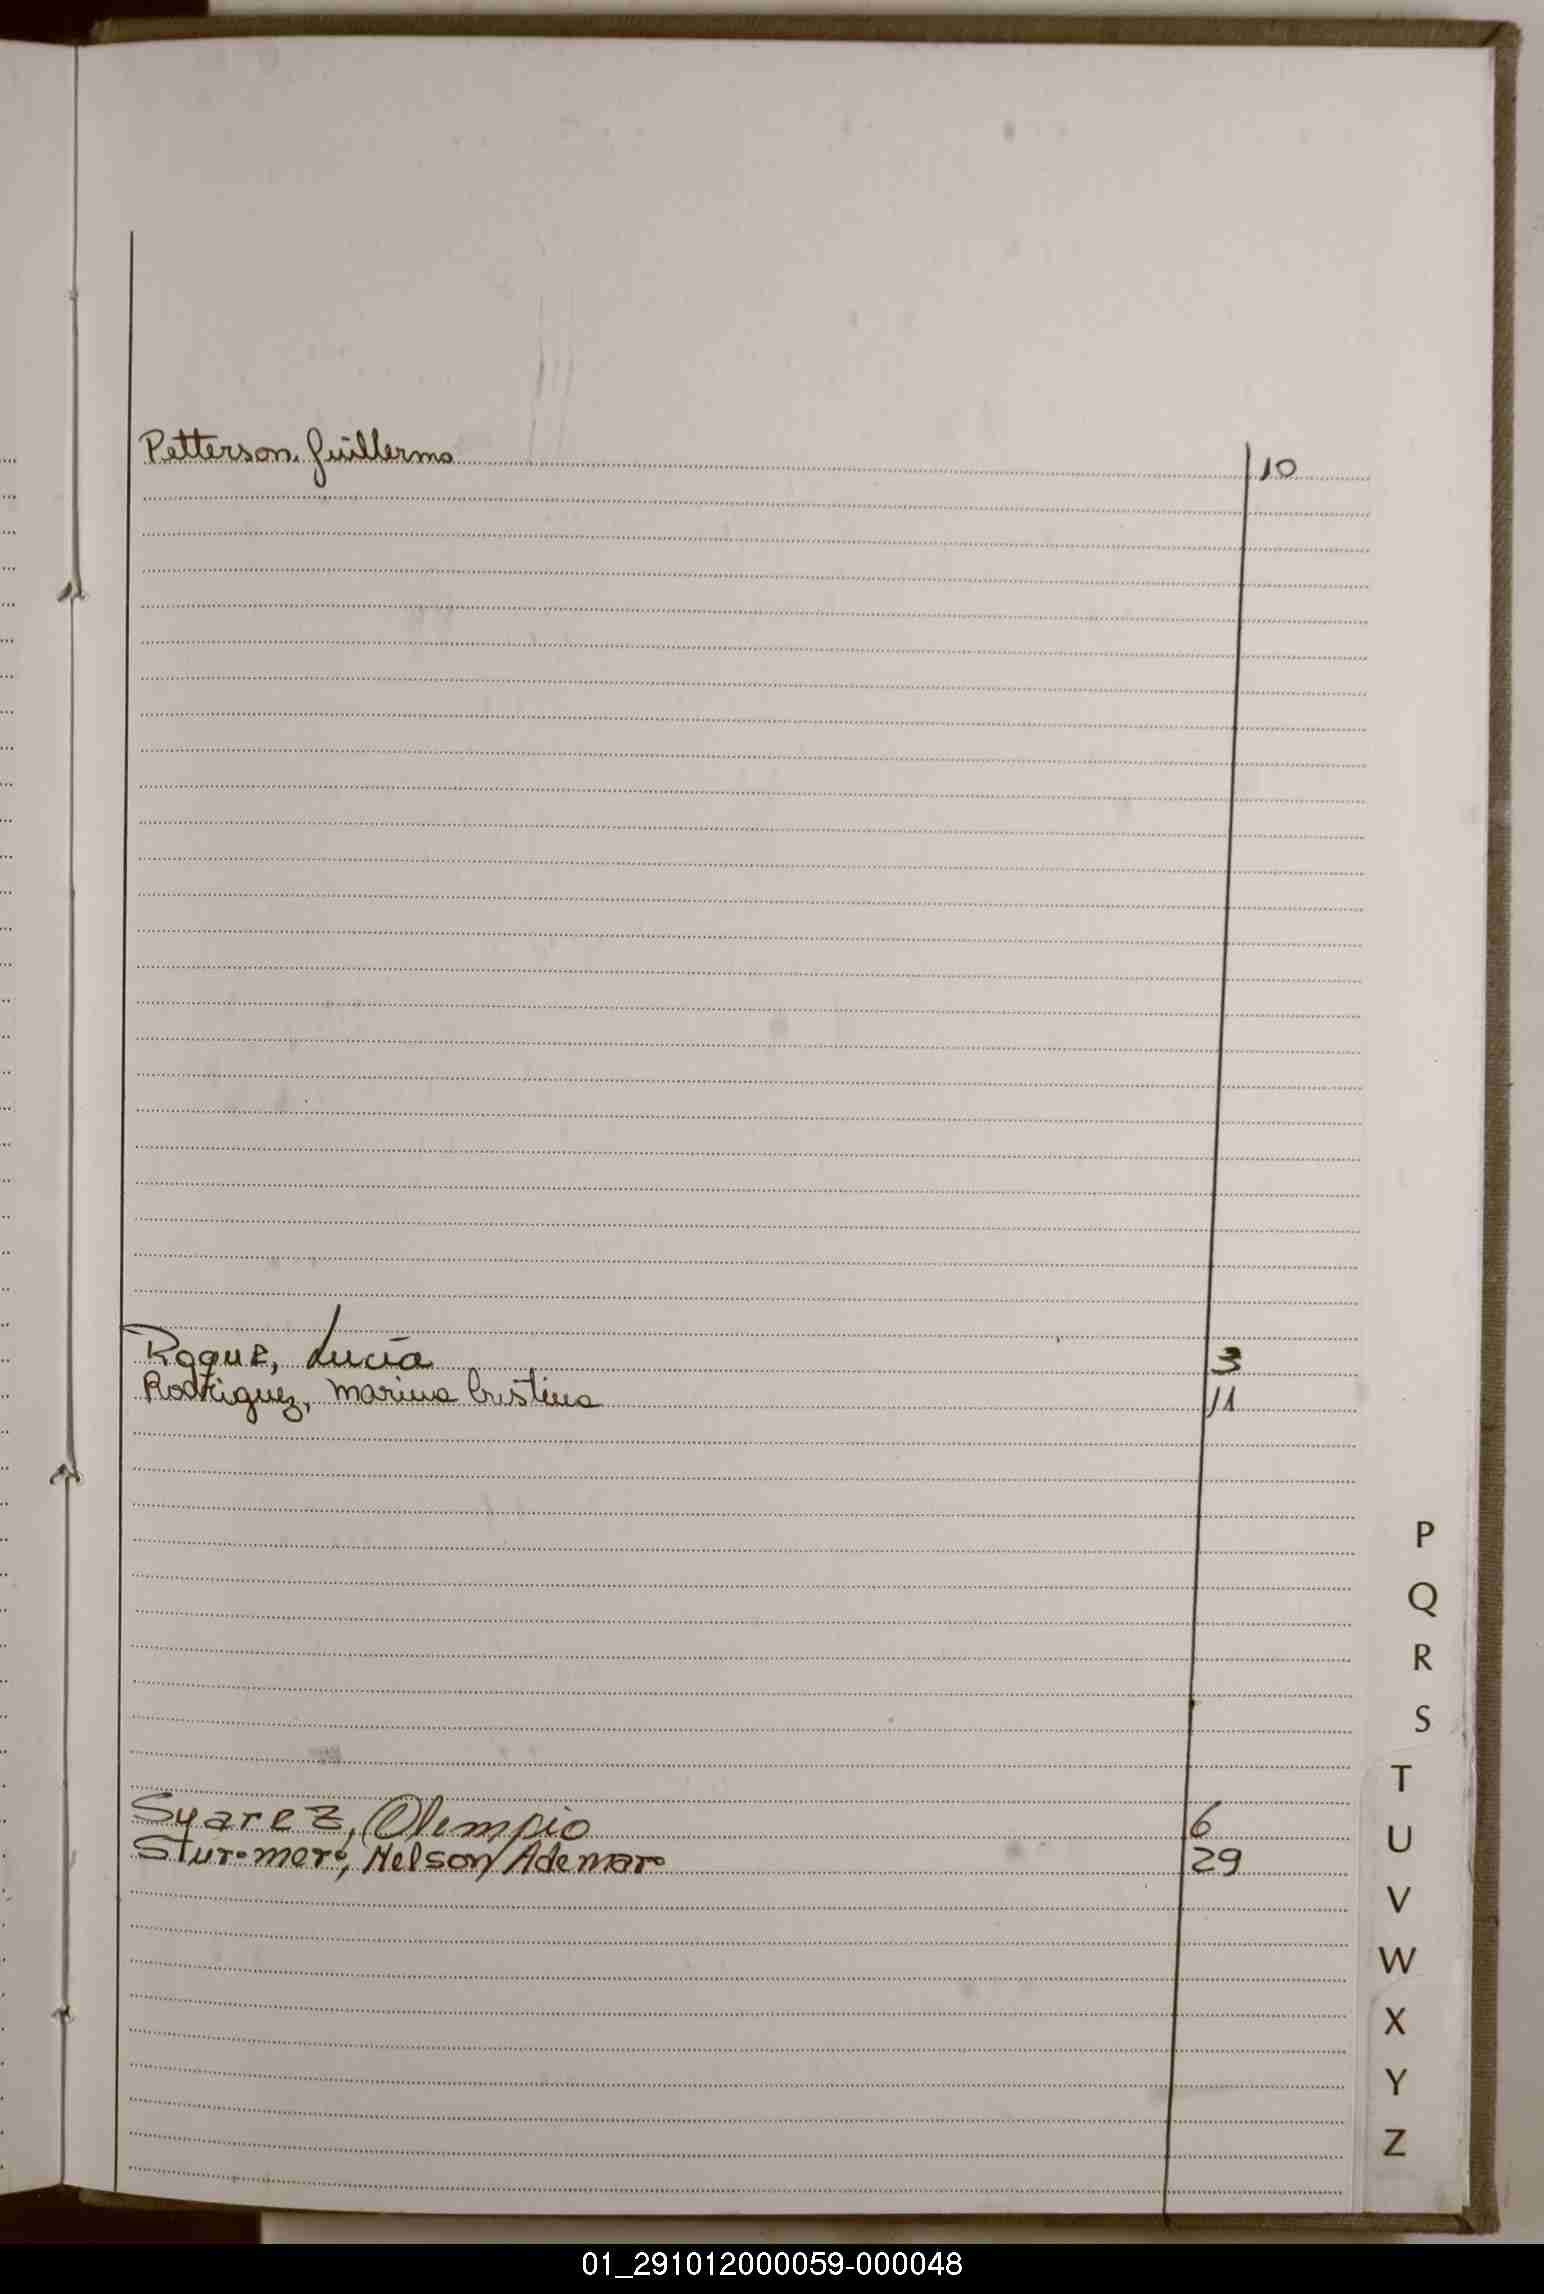 Petterson, Guillermo 10
Roque, Lucía 3
Rodriguez, Marina Cristina 11
Suarez, Olempio 6
Sturmer, Nelson Ademar 29
P
Q
R
S
T
U
V
W
X
Y
Z
01_291012000059-000048